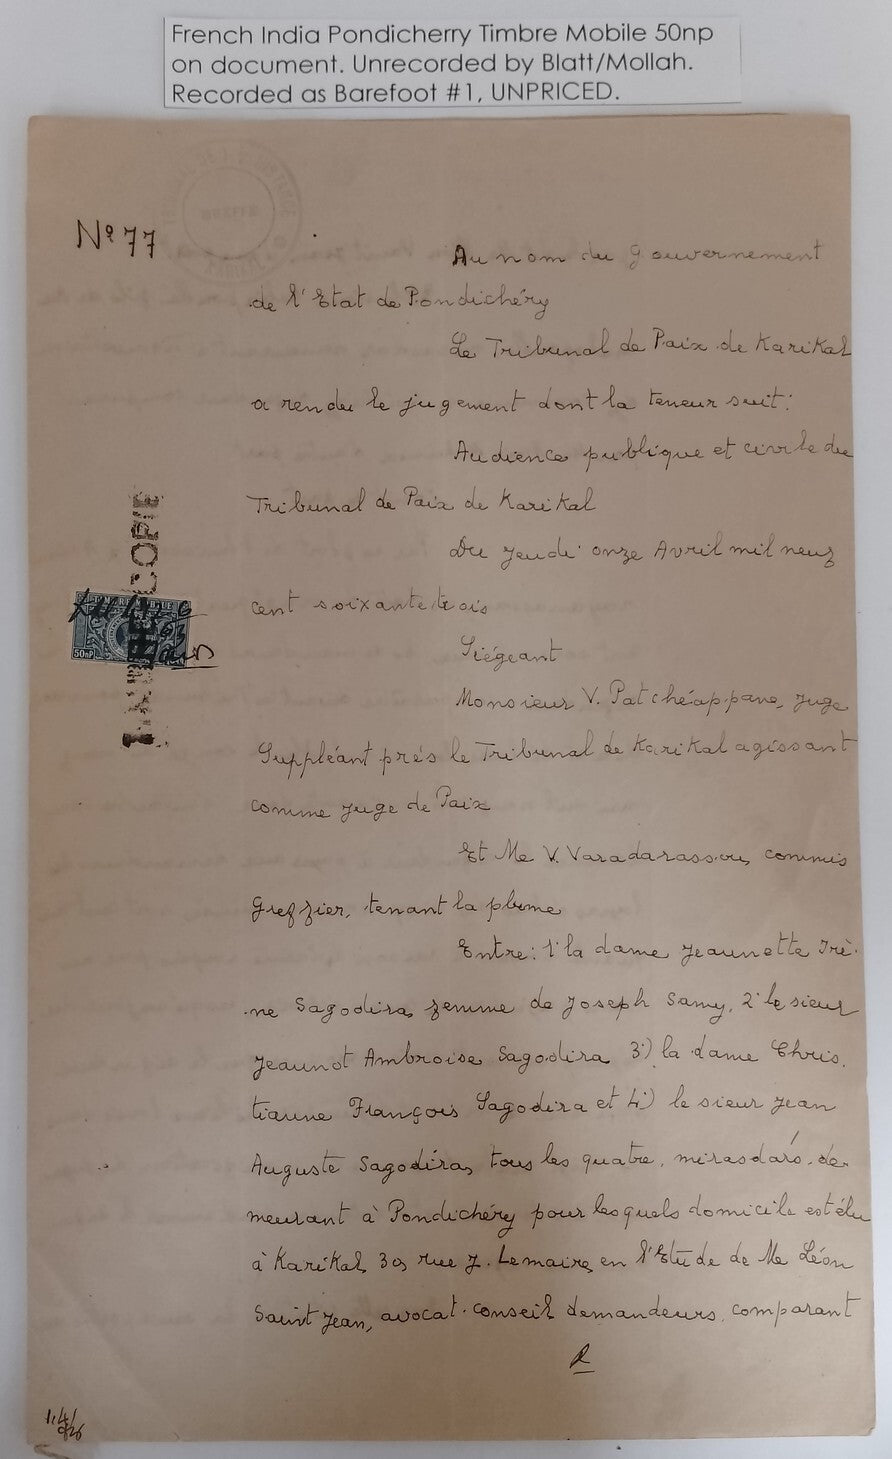 French India Pondicherry Timbre Mobile 50np
on document. Unrecorded by Blatt/Mollah.
Recorded as Barefoot #1, UNPRICED.
Nº 77
Au nom du gouvernement
de l'Etat de Pondichéry
Le Tribunal de Paix de Karikal
a rendu le jugement dont la teneur suit:
Audience publique et civile du
Tribunal de Paix de Karikal
Du jeudi onze Avril mil neuf
cent soixante trois
Siégeant
Monsieur V. Patchéappane, juge
Suppléant près le Tribunal de Karikal agissant
comme juge de Paix
Et Me V. Varadarassou, commis
Greffier, tenant la plume
Entre: 1° la dame Jeannette Irè-
ne Sagodira, femme de Joseph Samy, 2° le sieur
Jeannot Ambroise Sagodira 3°) la dame Chris
tianne François Sagodira et 4°) le sieur Jean
Auguste Sagodira, tous les quatre, mirasdars, de-
meurant à Pondichéry pour lesquels domicile est élu
à Karikal, 30, rue J. Lemaire, en l'Etude de Me Léon
Saint Jean, avocat-conseil demandeurs, comparant
COPIE
50nP